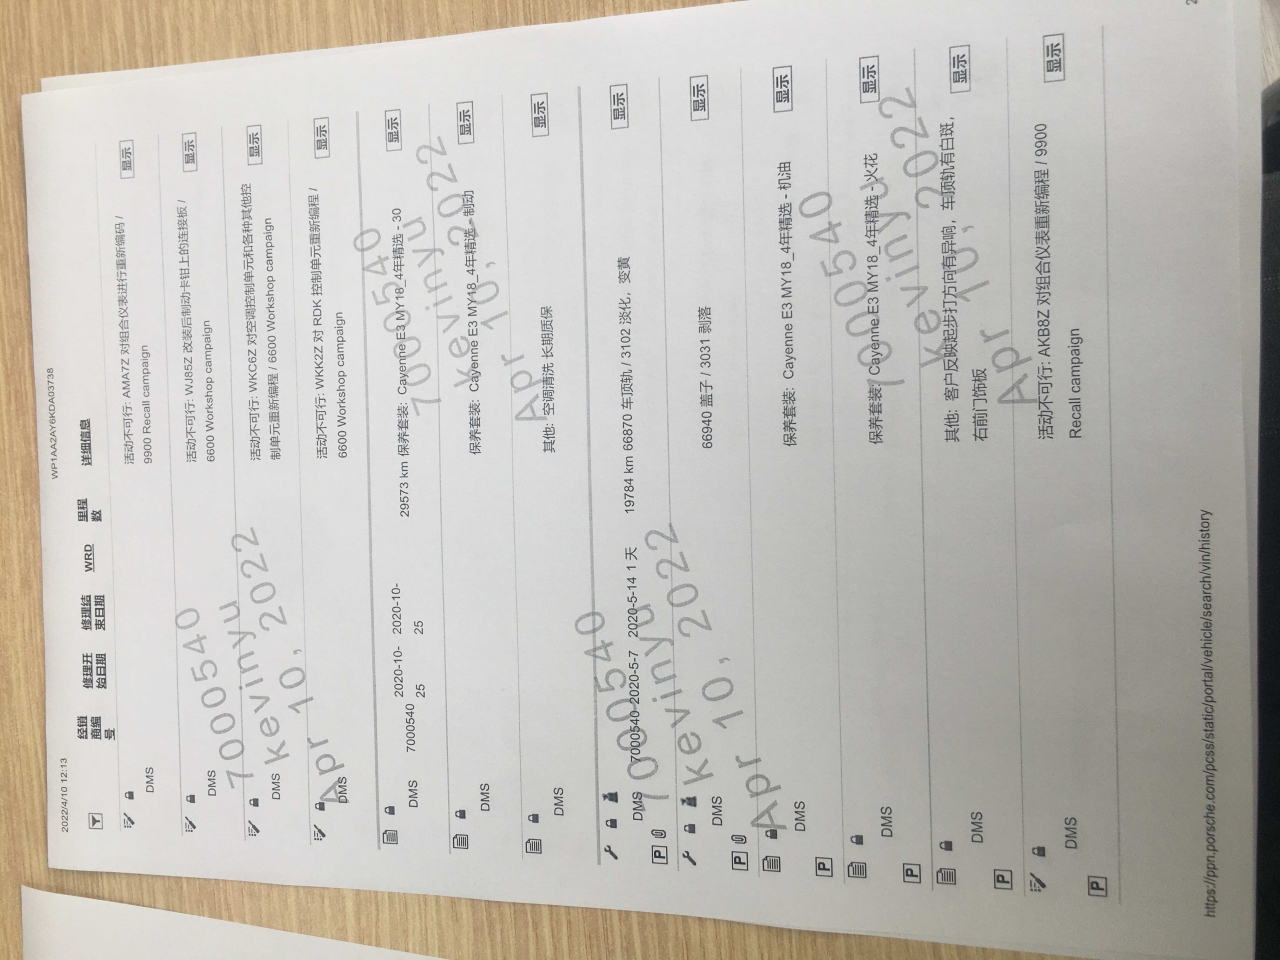 2022/4/10 12:13 WP1AA2AY6KDA03738
经销商编号 修理开始日期 修理结束日期 WRD 里程数 详细信息
DMS 活动不可行: AMA7Z 对组合仪表进行重新编码 / 显示
9900 Recall campaign
DMS 活动不可行: WJ85Z 改装后制动卡钳上的连接板 / 显示
6600 Workshop campaign
DMS 活动不可行: WKC6Z 对空调控制单元和各种其他控 显示
制单元重新编程 / 6600 Workshop campaign
DMS 活动不可行: WKK2Z 对 RDK 控制单元重新编程 / 显示
6600 Workshop campaign
7000540
kevinyu
Apr 10, 2022
DMS 7000540 2020-10-25 2020-10-25 29573 km 保养套装: Cayenne E3 MY18_4年精选 - 30 显示
DMS 保养套装: Cayenne E3 MY18_4年精选 - 制动 显示
DMS 其他: 空调清洗 长期质保 显示
7000540
kevinyu
Apr 10, 2022
DMS 7000540 2020-5-7 2020-5-14 1 天 19784 km 66870 车顶轨 / 3102 淡化，变黄 显示
P
DMS 66940 盖子 / 3031 剥落 显示
P
7000540
kevinyu
Apr 10, 2022
DMS 保养套装: Cayenne E3 MY18_4年精选 - 机油 显示
P
DMS 保养套装: Cayenne E3 MY18_4年精选 - 火花 显示
P
DMS 其他: 客户反映起步打方向有异响，车顶轨有白斑， 显示
右前门饰板
P
7000540
kevinyu
Apr 10, 2022
DMS 活动不可行: AKB8Z 对组合仪表重新编程 / 9900 显示
Recall campaign
P
https://ppn.porsche.com/pcss/static/portal/vehicle/search/vin/history